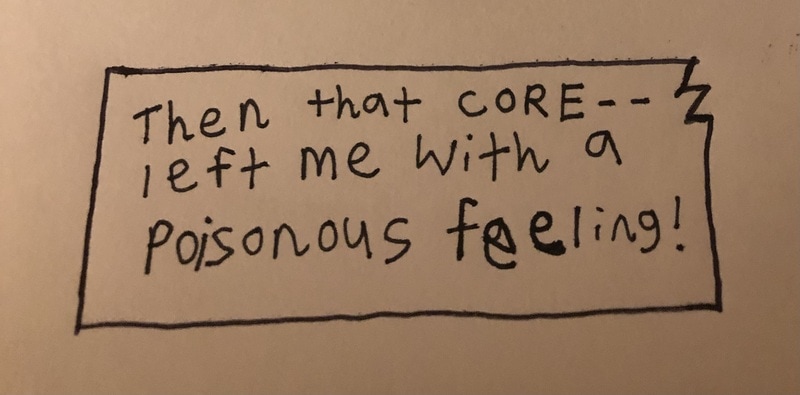 Then that CORE--
left me with a
poisonous feeling!